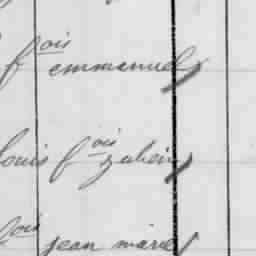 fois emmanuel
louis fois
fois jean marie